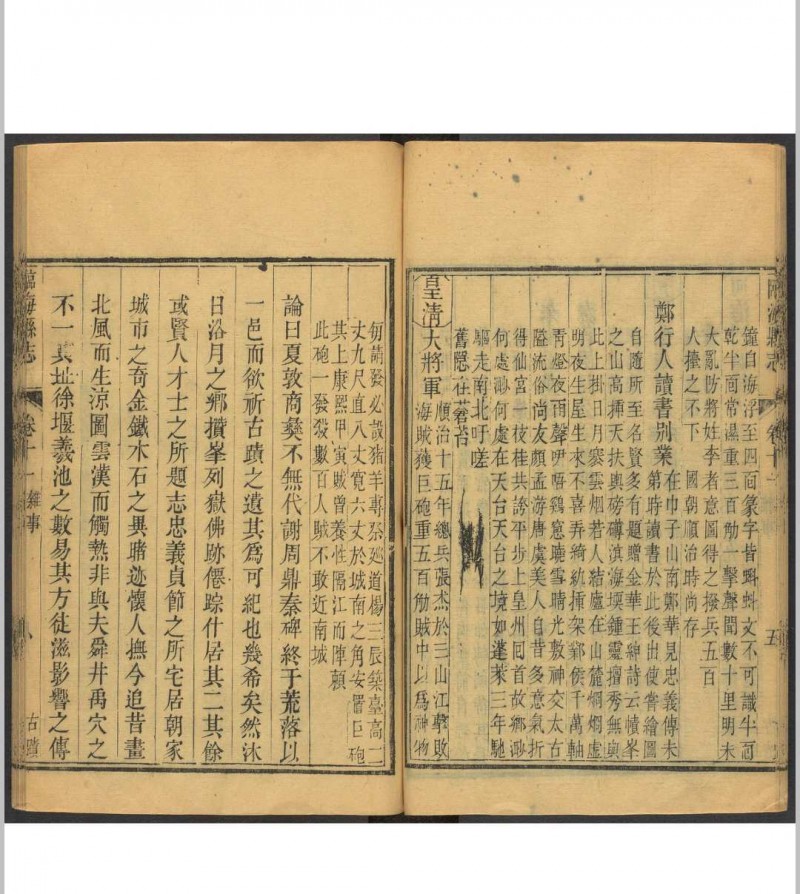 鐘自海浮至四面篆字皆蝌蚪文不可識牛面
乾半面常濕重三百觔一擊聲聞數十里明末
大亂防將姓李者意圖得之撥兵五百
人撞之不下 國朝順治時尚存
鄭行人讀書別業 在巾子山南鄭華見忠義傳未
第時讀書於此後出使嘗繪圖
自隨所至名賢多有題贈金華王紳詩云幘峯
之山高揷天扶輿磅礴滇海堧鍾靈擅秀無與
此上掛日月窮雲烟若人結廬在山麓烱烱虛
明夜生屋生來不喜弄綺紈揷架鄴侯千萬軸
青燈夜雨聲咿唔鷄窓曉雪晴光敷神交太古
隘流俗尚友顏孟游唐虞美人自昔多意氣折
得仙宮一枝桂共誇平步上皇州囘首故鄉渺
何處渺何處在天台天台之境如蓬萊三年馳
驅走南北吁嗟
舊隱在蒼苔
皇清大將軍 順治十五年總兵張杰於三山江擊敗
海賊獲巨砲重五百觔賊中以爲神物
臨海縣志 卷十一
五
每請發必設猪羊專祭廵道楊三辰築臺高二
丈九尺直八丈寛六丈於城南之角安置巨砲
其上康熙甲寅賊曾養性隔江而陣頼
此砲一發殺數百人賊不敢近南城
論曰夏敦商彝不無代謝周鼎秦碑終于荒落以
一邑而欲祈古蹟之遺其爲可紀也幾希矣然沐
日浴月之鄉攢峯列嶽佛跡僊踪什居其二其餘
或賢人才士之所題志忠義貞節之所宅居朝家
城市之奇金鐵木石之異暗迹懷人撫今追昔畫
北風而生涼圖雲漢而觸熱非與夫舜井禹穴之
不一眞址徐堰羲池之數易其方徒滋影響之傳
臨海縣志 卷十一 雜事 古蹟